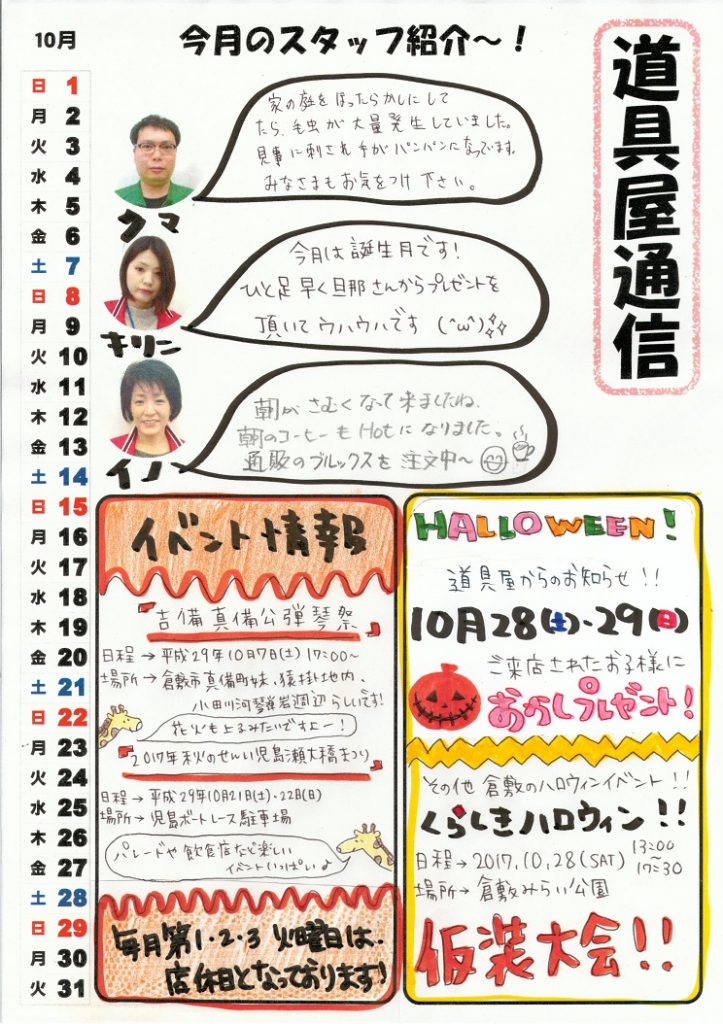 10月
今月のスタッフ紹介～!
道具屋通信
日 1
月 2
火 3
水 4
木 5
金 6
土 7
日 8
月 9
火 10
水 11
木 12
金 13
土 14
日 15
月 16
火 17
水 18
木 19
金 20
土 21
日 22
月 23
火 24
水 25
木 26
金 27
土 28
日 29
月 30
火 31
家の庭をほったらかしにして
たら、毛虫が大量発生していました。
見事に刺され手がパンパンになってます。
みなさまもお気をつけ下さい。
クマ
今月は誕生月です!
ひと足早く旦那さんからプレゼントを
頂いてウハウハです (^ω^)
キリン
朝がさむくなって来ましたね、
朝のコーヒーもHotになりました。
通販のブルックスを注文中～
イノ
イベント情報
『吉備真備公弾琴祭』
日程→平成29年10月7日(土)17:00～
場所→倉敷市真備町妹、猿掛地内、
小田川河琴弾岩週辺らしいです!
花火も上るみたいですよー!
『2017年秋のせんい児島瀬大橋まつり』
日程→平成29年10月21日(土)・22日(日)
場所→児島ボートレース駐車場
パレードや飲食店など楽しい
イベントいっぱいよ
毎月第1・2・3火曜日は、
店休日となっております!
HALLOWEEN!
道具屋からのお知らせ!!
10月28(土)・29(日)
ご来店されたお子様に
おかしプレゼント!
その他 倉敷のハロウィンイベント!!
くらしきハロウィン!!
日程→2017,10,28(SAT) 13:00～17:30
場所→倉敷みらい公園
仮装大会!!